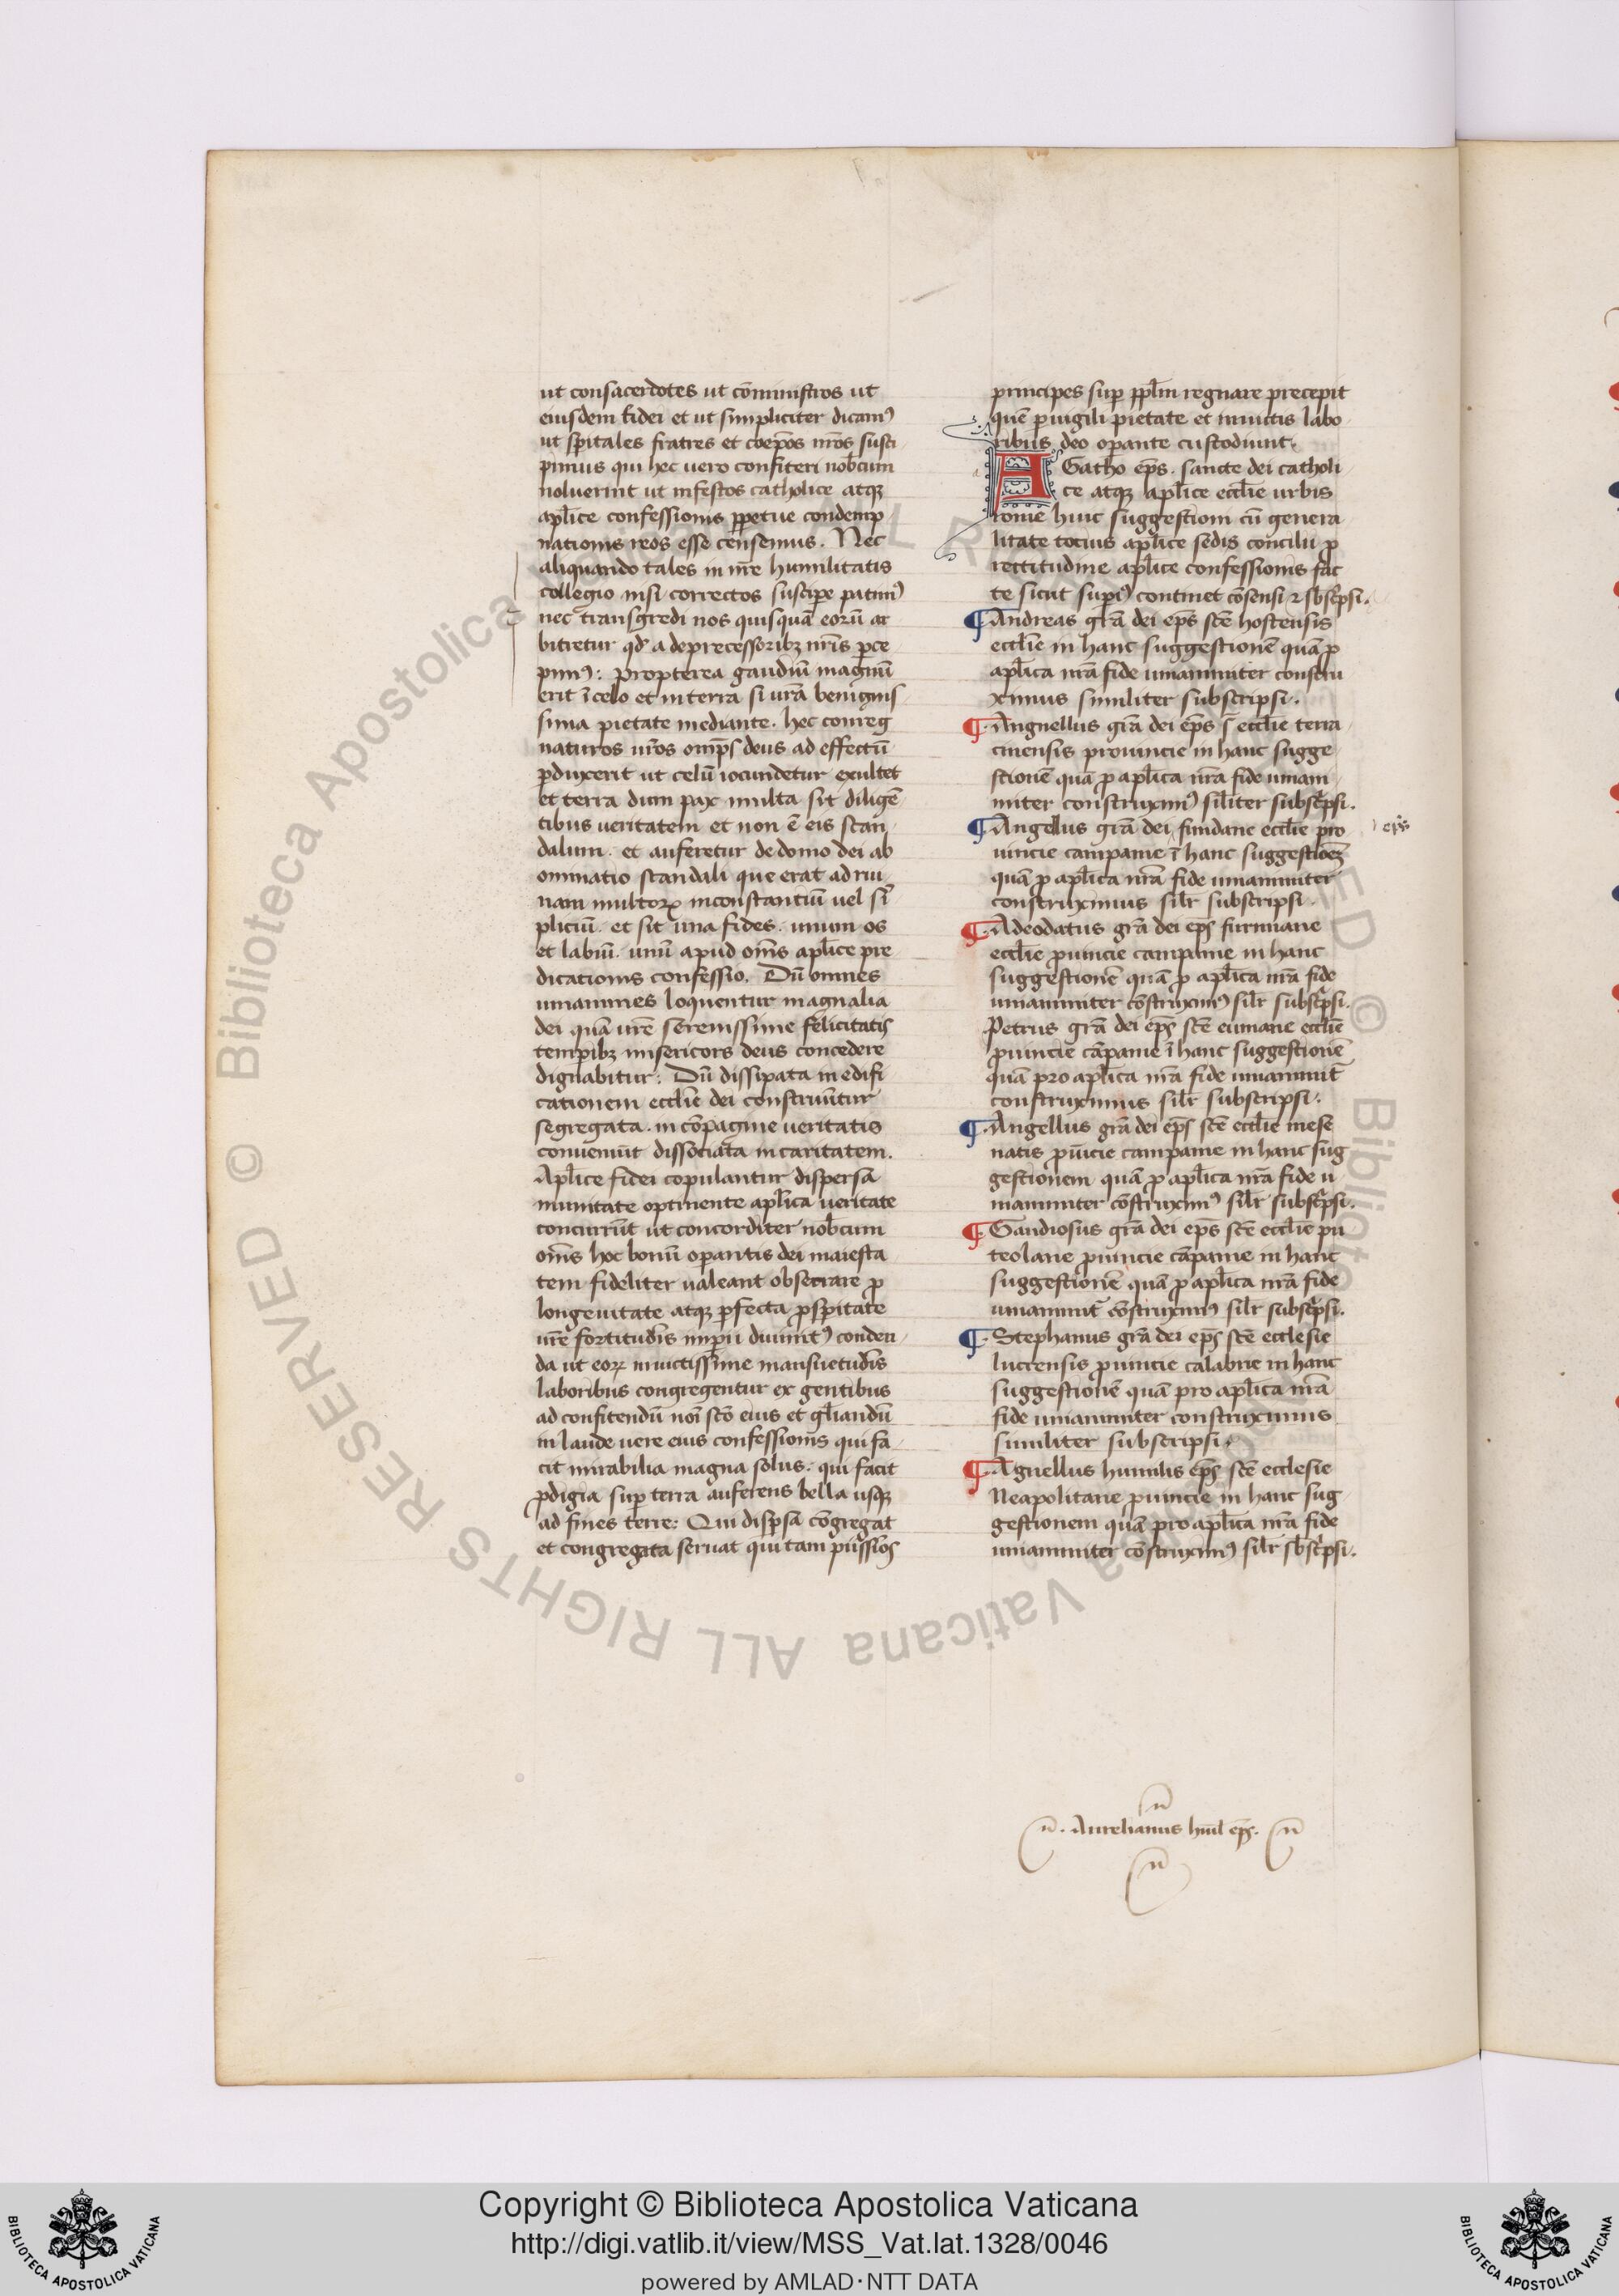 ut consacerdotes ut cōministros ut
eiusdem fidei et ut simpliciter dicamꝰ
ut spitales fratres et coepōs nr̄os susci
pimus qui hec uero confiteri nobcum
noluerint ut infestos catholice atqꝫ
aplice confessionis ppetue condemp
nationis reos esse censemus. Nec
aliquando tales in nr̄e humilitatis
collegio nisi correctos suscipe patimꝰ
nec transgredi nos quisquā eorū ar
bitretur qd̄ a deprecessoribꝫ nr̄is perce
pimꝰ: Propterea gaudiū magnū
erit ī celo et in terra si ur̄a benignis
sima pietate mediante. hec conreg
naturos ur̄os omps deus ad effectū
ꝓduxerit ut celū iocundetur exultet
et terra dum pax multa sit diligē
tibus veritatem et non ē eis scan
dalum. et auferetur de domo dei ab
ominatio scandali que erat ad rui
nam multoꝝ inconstantiū uel sī
pliciū. et sit una fides. unum os
et labiū. unū apud om̄s aplice pre
dicationis confessio. Dū omnes
unanimes loquentur magnalia
dei quā ur̄e serenissime felicitatis
tempibꝫ misericors deus concedere
dignabitur: Dū dissipata in edifi
cationem eccl̄ie dei construūtur
segregata. in cōpagine ueritatis
conueniūt dissociata in caritatem.
Aplice fidei copulantur dispersa
inunitate optinente aplica ueritate
concurrūt ut concorditer nobcum
om̄s hoc bonū opantis dei maiesta
tem fideliter ualeant obsecrare ꝓ
longeuitate atqꝫ pfecta ꝓspitate
ur̄e fortitudīs impii diuinitꝰ conden
da ut eoꝝ inuictissime mansuetudīs
laboribus congregentur ex gentibus
ad confitendū noī scō eius et gl̄iandū
in laude uere eius confessionis qui fa
cit mirabilia magna solus: qui facit
ꝓdigia sup terra auferens bella usqꝫ
ad fines terre: Qui dispsa cōgregat
et congregata seruat qui tam piissīos
principes sup pplm regnare precepit
quē puigili pietate et inuictis labo
ribus deo opante custodiunt.
AGatho eps. sancte dei catholi
ce atqꝫ aplice eccl̄ie urbis
rome huic suggestioni cū genera
litate tocius aplice sedis concilii ꝓ
rectitudine aplice confessionis fac
te sicut supiꝰ continet cōsensi ⁊ sbscpsi.
¶Andreas grā dei eps scē hostensis
eccl̄ie in hanc suggestionē quā ꝓ
aplica nr̄a fide unanimiter constru
ximus similiter subscripsi.
¶Angnellus grā dei eps s eccl̄ie terra
cinensis prouincie in hanc sugge
stionē quā ꝓ aplica nr̄a fide unani
miter construximꝰ silīter subscpsi.
¶Angellus grā dei fundane eccl̄ie pro
eps
uincie campanie ī hanc suggestioēꝫ
quā ꝓ aplica nr̄a fide unanimiter
construximus silr subscripsi.
¶Adeodatus grā dei eps furmiane
eccl̄ie ꝓuincie campanie in hanc
suggestionē quā ꝓ aplica nr̄a fide
unanimiter cōstruximꝰ silr subscpsi.
Petrus grā dei eps scē cumane eccl̄ie
ꝓuincie cāpanie ī hanc suggestionē
quā pro aplica nr̄a fide unanimit̄
construximus silr subscripsi.
¶Angellus grā dei eps scē eccl̄ie mese
natis ꝓuīcie campanie in hanc sug
gestionem quā ꝓ aplica nr̄a fide u
nanimiter cōstruximꝰ silr subscpsi.
¶Gaudiosus grā dei eps scē eccl̄ie pu
teolane ꝓuincie cāpanie in hanc
suggestionē quā ꝓ aplica nr̄a fide
unanimit̄ cōstruximꝰ silr subscpsi.
¶Stephanus grā dei eps scē ecclesie
lucrensis ꝓuincie calabrie in hanc
suggestionē quā pro aplica nr̄a
fide unanimiter construximus
similiter subscripsi.
¶Agnellus humilis eps scē ecclesie
Neapolitane ꝓuincie in hanc sug
gestionem quā pro aplica nr̄a fide
unanimiter cōstruximꝰ silr sbscpsi.
Aurelianus huīl eps.
Copyright © Biblioteca Apostolica Vaticana
http://digi.vatlib.it/view/MSS_Vat.lat.1328/0046
powered by AMLAD·NTT DATA
BIBLIOTECA APOSTOLICA VATICANA
BIBLIOTECA APOSTOLICA VATICANA
© Biblioteca Apostolica Vaticana ALL RIGHTS RESERVED